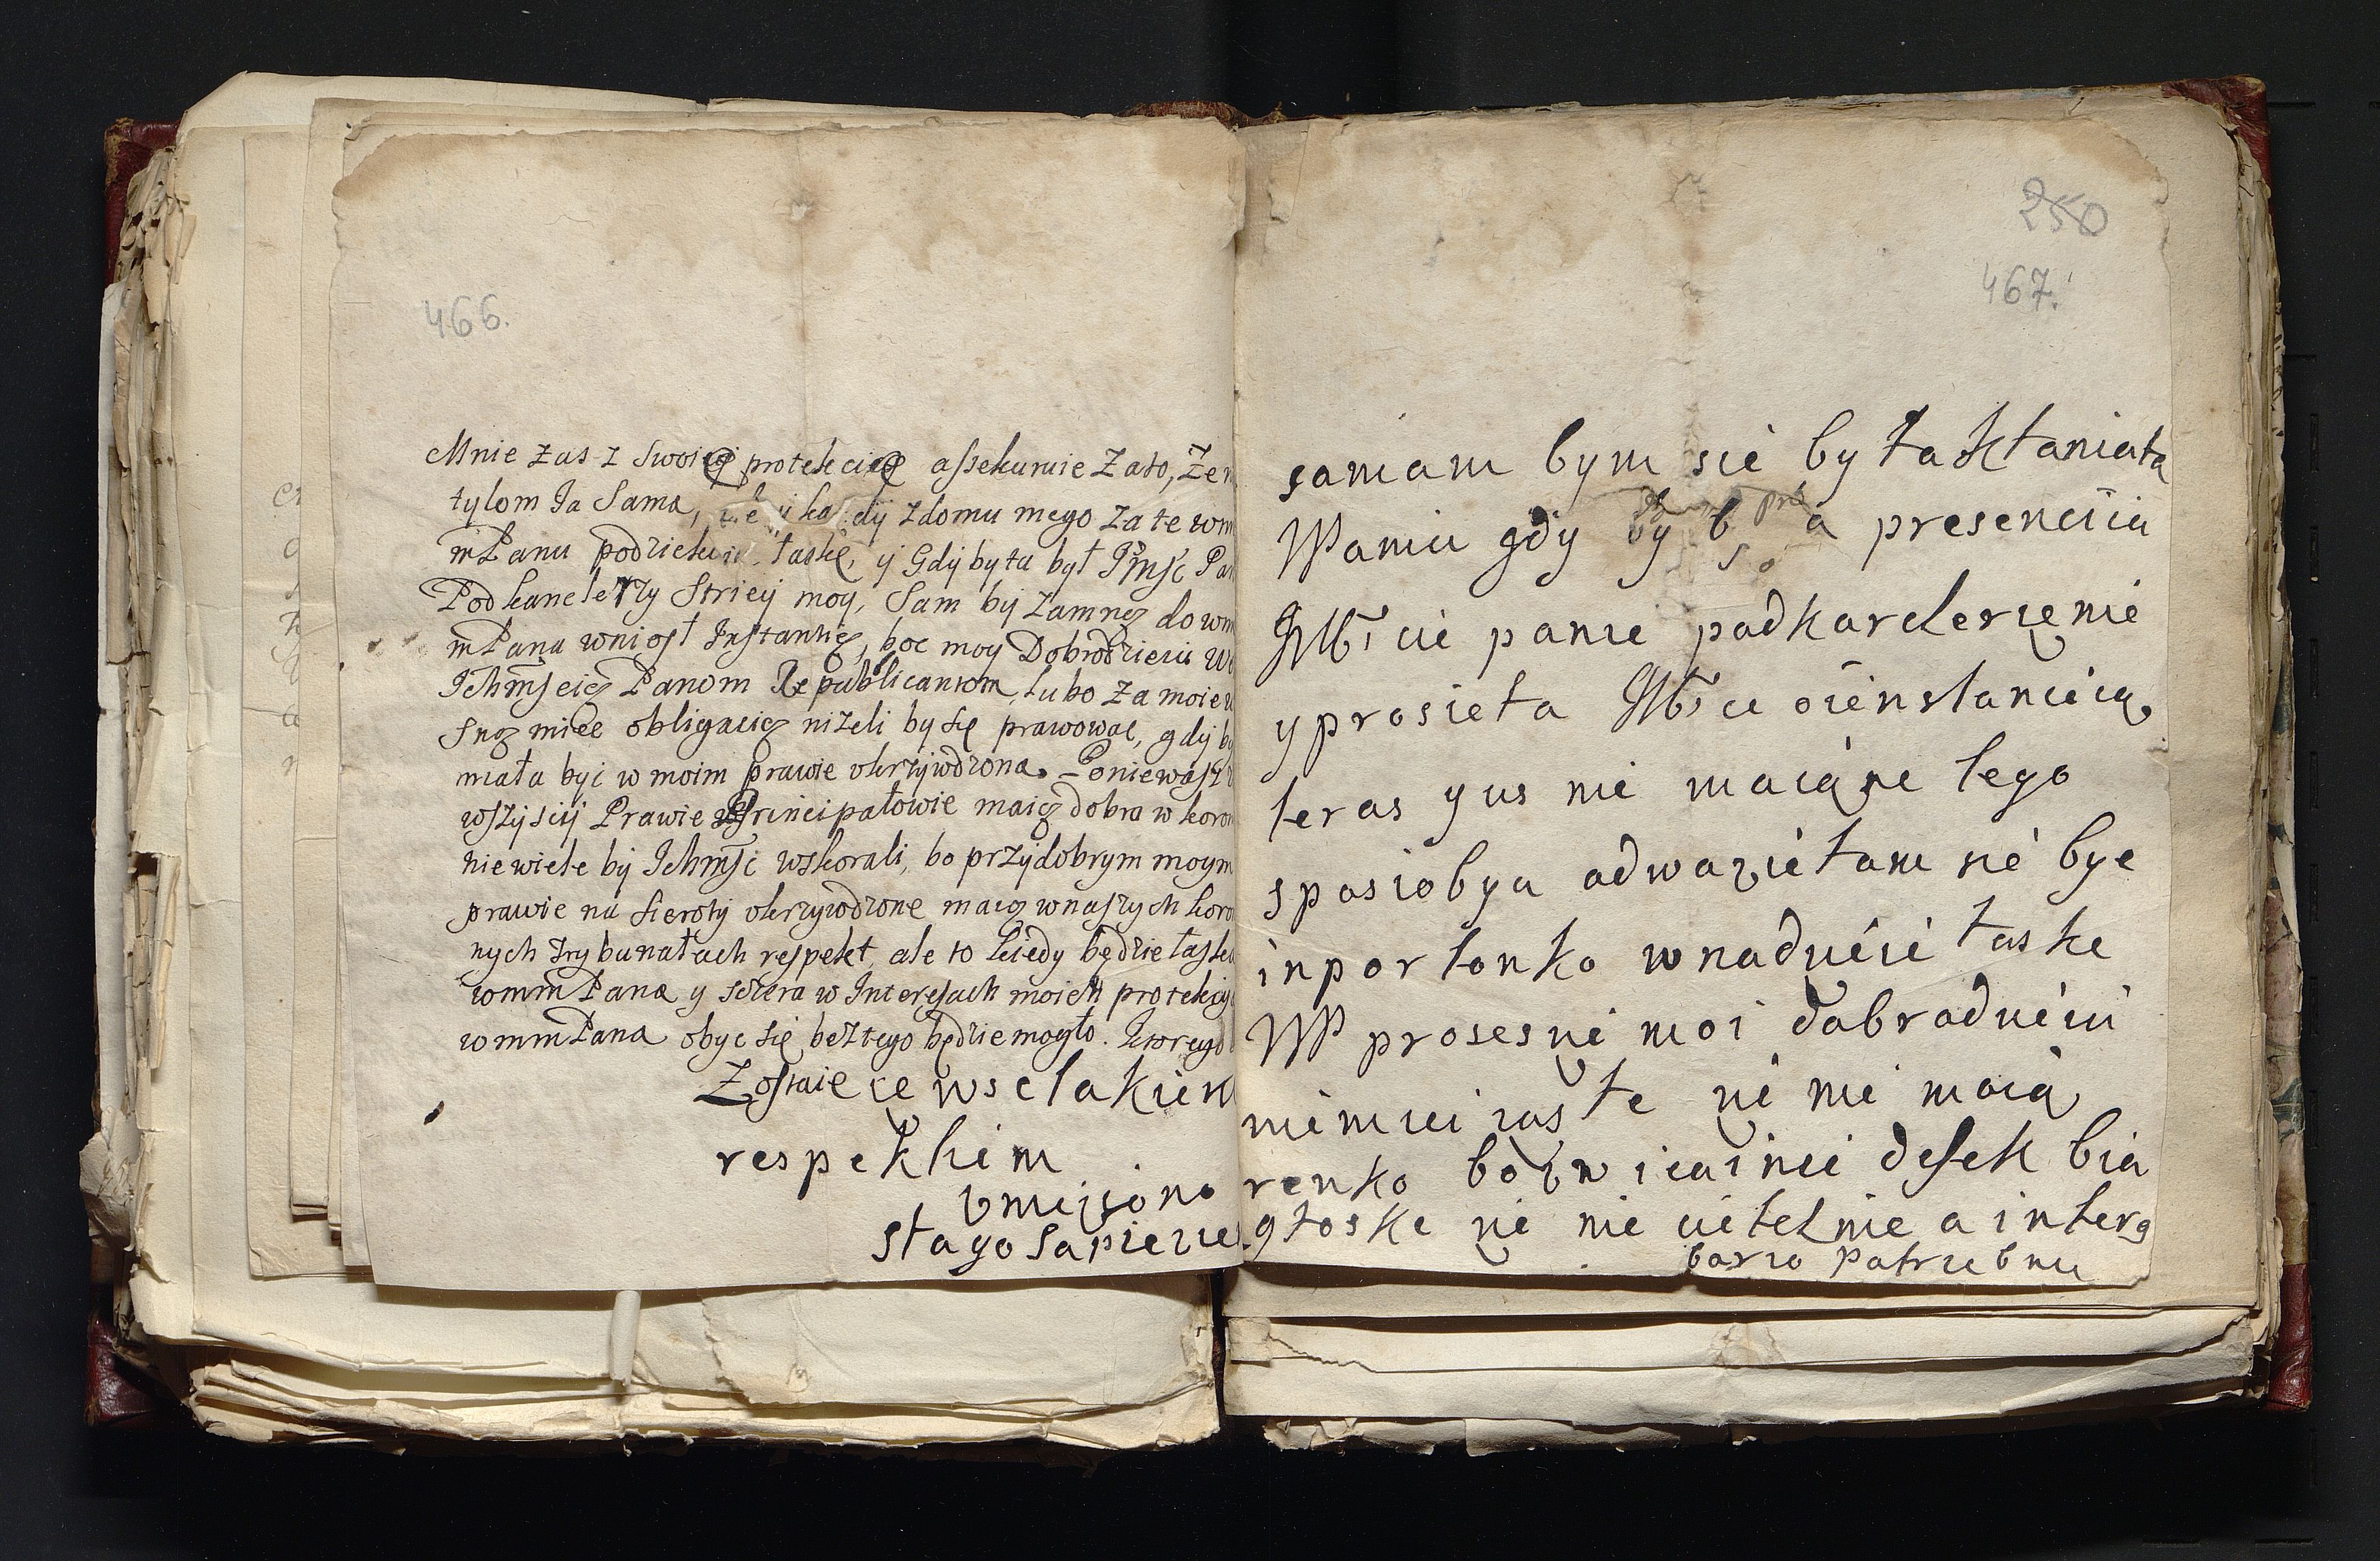 466.
Mnie zas z swoiey protekcięy assekuruie zato, Że
tylom Ja Sama, ale y każdy z domu mego za te wm
mPanu podziekuie łaskę, y Gdy by tu był Jmść Pan
Podkanclerzy Striey moy, Sam by zamną do wm
mPana wniosł Instantię, boc moy Dobrodzieiu
Ichmściej Panom Republicantom, lubo za moie
sną miec obligacię niżeli by się prawowac, gdy by
miała być w moim prawie ukrzywdzona. Poniewasz
wszyscy Prawie Principałowie maią dobra w koro
nie wiele by Ichmść wskorali, bo przy dobrym moym
prawie na Sieroty ukrzywdzone maią w naszych koro
nych Trybunałach respekt, ale to kiedy będzie łaska
wmmPana y sczera w Interesach moich protekcy
wmmPana obyc się bez tego będzie mogło. Ktorego
Zostaie ze wsełakiem
respekhim
Vniżona
stago Sapiezie
250
467.
samam bym sie była kłaniała
WPaniu gdy by b a presenciia
JMści panie podkanclerzęnie
y prosieła JMści oienstancią
teras yus nie maiąne tego
sposiobya odwaziełam sie bye
inportonko wnadzieie łaske
WP prosesne moi dobrodzieiu
mimiei ias te ne nie moią
renko boźwicainei desek bia
głoske ne nie citelnie a intera
barzo potrzebnu